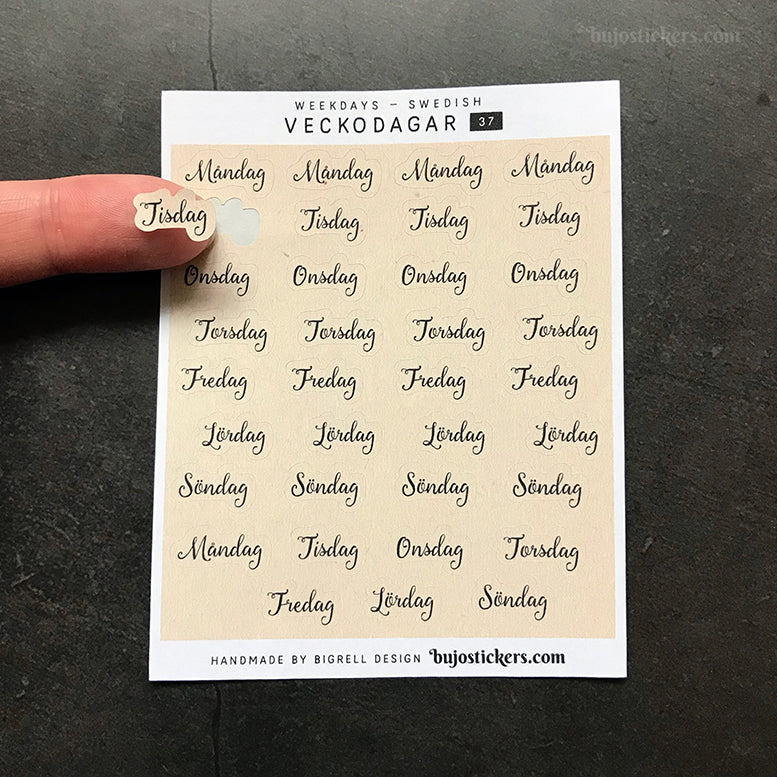 bujostickers.com
WEEKDAYS – SWEDISH
VECKODAGAR 37
Måndag Måndag Måndag Måndag
Tisdag Tisdag Tisdag Tisdag
Onsdag Onsdag Onsdag Onsdag
Torsdag Torsdag Torsdag Torsdag
Fredag Fredag Fredag Fredag
Lördag Lördag Lördag Lördag
Söndag Söndag Söndag Söndag
Måndag Tisdag Onsdag Torsdag
Fredag Lördag Söndag
HANDMADE BY BIGRELL DESIGN bujostickers.com